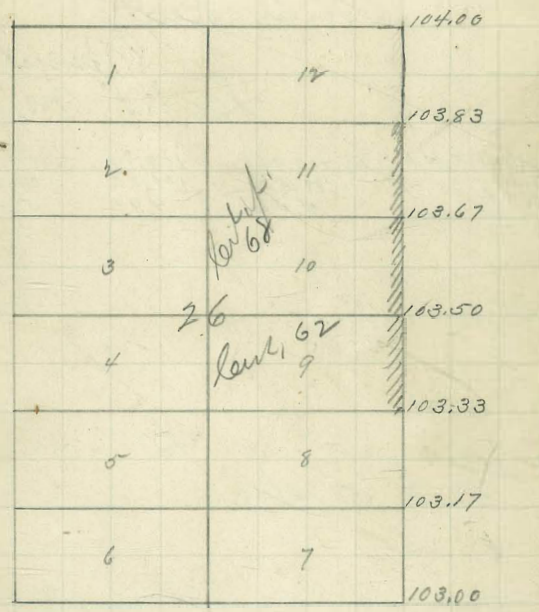 104.00
1 12
103.83
2. 11
103.67
68
3 10
26
103.50
62
4 9
103.33
5 8
103.17
6 7
103.00